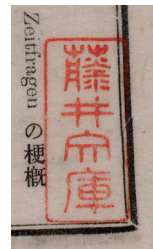 藤井文庫
Zeitfragen の梗概